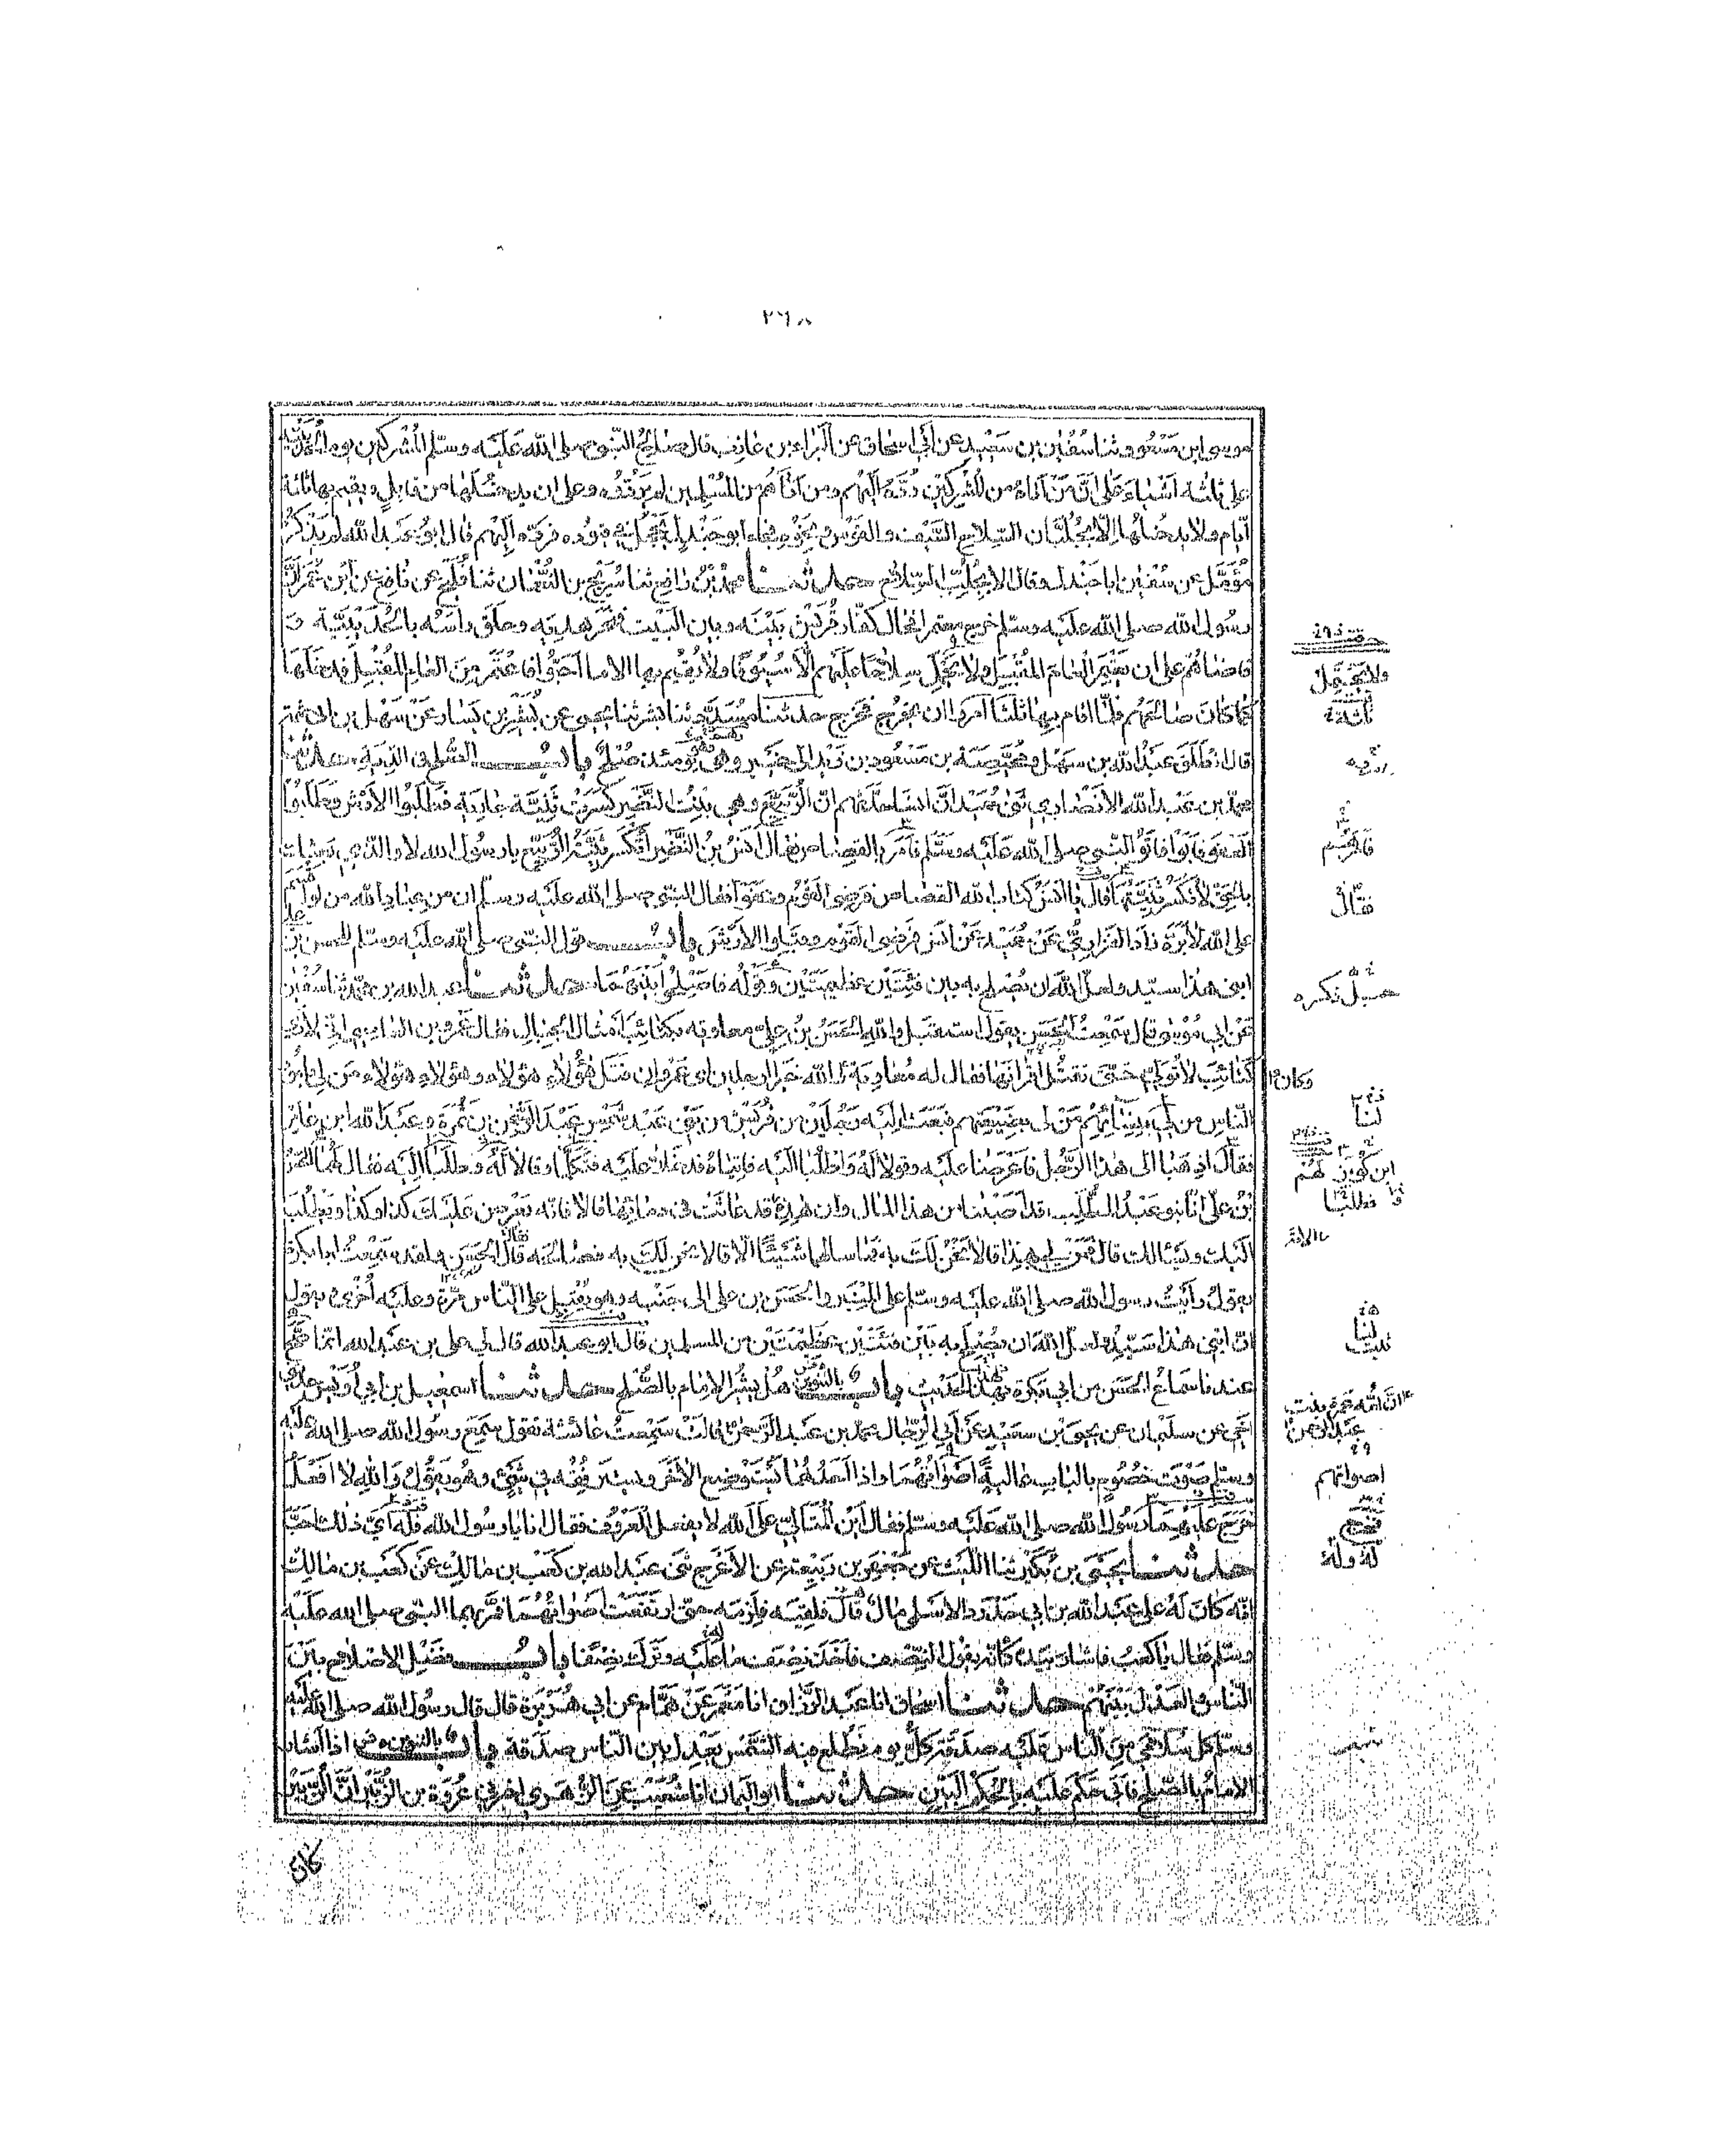 ٢٦٨
موسى ابن مسعود ثنا سفين بن سعيد عن ابي اسحاق عن البراء بن عازب قال صالح النبي صلى الله عليه وسلم المشركين يوم الحديبية
على ثلثه اشياء على ان من اتاه من المشركين رده اليهم ومن اتاهم من المسلمين لم يردوه وعلى ان يدخلها من قابل ويقيم بها ثلثة
ايام ولا يدخلها الا بجلبان السلاح السيف والقوس ونحوه فجاء ابو جندل يحجل في قيوده فرده اليهم قال ابو عبد الله لم يذكر
مؤمل عن سفين ابا جندل وقال الا بجلب السلاح حدثنا محمد بن رافع ثنا سريج بن النعمان ثنا فليح عن نافع عن ابن عمر ان
رسول الله صلى الله عليه وسلم خرج معتمرا فحال كفار قريش بينه وبين البيت فنحر هديه وحلق راسه بالحديبية و
قاضاهم على ان يعتمر العام المقبل ولا يحمل سلاحا عليهم الا سيوفا ولا يقيم بها الا ما احبوا فاعتمر من العام المقبل فدخلها
كما كان صالحهم فلما اقام بها ثلثا امروه ان يخرج فخرج حدثنا مسدد ثنا بشر ثنا يحيى عن بشير بن يسار عن سهل بن ابي حثمة
قال انطلق عبد الله بن سهل ومحيصة بن مسعود بن زيد الى خيبر وهي يومئذ صلح باب الصلح في الدية حدثنا
محمد بن عبد الله الانصاري ثنى حميد ان انسا حدثهم ان الربيع وهي بنت النضير كسرت ثنية جارية فطلبوا الارش وطلبوا
العفو فابوا فاتوا النبي صلى الله عليه وسلم فامر بالقصاص فقال انس بن النضر اتكسر ثنية الربيع يا رسول الله لا والذي بعثك
بالحق لا تكسر ثنيتها قال يا انس كتاب الله القصاص فرضي القوم وعفوا فقال النبي صلى الله عليه وسلم ان من عباد الله من لو اقسم
على الله لابره زاد الفزاري عن حميد عن انس فرضى القوم وقبلوا الارش باب قول النبي صلى الله عليه وسلم للحسن بن على
ابني هذا سيد ولعل الله ان يصلح به بين فئتين عظيمتين وقوله فاصلحوا بينهما حدثنا عبد الله بن محمد ثنا سفين
عن ابي موسى قال سمعت الحسن يقول استقبل والله الحسن بن علي معاوية بكتائب امثال الجبال فقال عمرو بن العاصي اني لارى
كتائب لا تولي حتى تقتل اقرانها فقال له معاوية والله خير الرجلين اي عمرو ان قتل هؤلاء هؤلاء وهؤلاء هؤلاء من لي بامور
الناس من لي بنسائهم من لي بضيعتهم فبعث اليه رجلين من قريش من بني عبد شمس عبد الرحمن بن سمرة وعبد الله ابن عامر
فقال اذهبا الى هذا الرجل فاعرضا عليه وقولا له واطلبا اليه فاتياه فدخلا عليه فتكلما وقالا له وطلبا اليه فقال لهما الحسن
بن علي انا بنو عبد المطلب قد اصبنا من هذا المال وان هذه الامة قد عاثت في دمائها قالا فانه يعرض عليك كذا وكذا ويطلب
اليك ويسالك قال فمن لي بهذا قالا نحن لك به فما سالهما شيئا الا قالا نحن لك به فصالحه قال الحسن ولقد سمعت ابا بكرة
يقول رأيت رسول الله صلى الله عليه وسلم على المنبر والحسن بن على الى جنبه وهو يقبل على الناس مرة وعليه اخرى ويقول
ان ابني هذا سيد ولعل الله ان يصلح به بين فئتين عظيمتين من المسلمين قال ابو عبد الله قال لي على بن عبد الله انما صح
عندنا سماع الحسن من ابي بكرة بهذا الحديث باب بالتنوين هل يشير الامام بالصلح حدثنا اسمعيل بن ابي اويس حدثني
اخي عن سليمان عن يحيى بن سعيد عن ابي الرجال محمد بن عبد الرحمن قالت سمعت عائشة تقول سمع رسول الله صلى الله عليه
وسلم صوت خصوم بالباب عالية اصواتهما واذا احدهما يستوضع الاخر ويسترفقه في شيئ وهو يقول والله لا افعل
فخرج عليهما رسول الله صلى الله عليه وسلم فقال اين المتالي على الله لا يفعل المعروف فقال انا يا رسول الله فله اي ذلك احب
حدثنا يحيى بن بكير ثنا الليث عن جعفر بن ربيعة عن الاعرج ثنى عبد الله بن كعب بن مالك عن كعب بن مالك
انه كان له على عبد الله بن ابي حدرد الاسلمي مال قال فلقيه فلزمه حتى ارتفعت اصواتهما فمر بهما النبي صلى الله عليه
وسلم فقال يا كعب فاشار بيده كانه يقول النصف فاخذ نصف ما عليه وترك نصفا باب فضل الاصلاح بين
الناس والعدل بينهم حدثنا اسحاق انا عبد الرزاق انا معمر عن همام عن ابي هريرة قال قال رسول الله صلى الله عليه
وسلم كل سلامى من الناس عليه صدقة كل يوم تطلع فيه الشمس يعدل بين الناس صدقة باب بالتنوين اذا اشار
الامام بالصلح فابى حكم عليه بالحكم البين حدثنا ابو اليمان انا شعيب عن الزهري اخبرني عروة بن الزبير ان الزبير
كان
ولا يحمل
ثلثة
فقال
وكان
لنا
ابن كريز لهم
فطلبا
لنا
عبد الرحمن
اصواتهم
فخرج
له وله